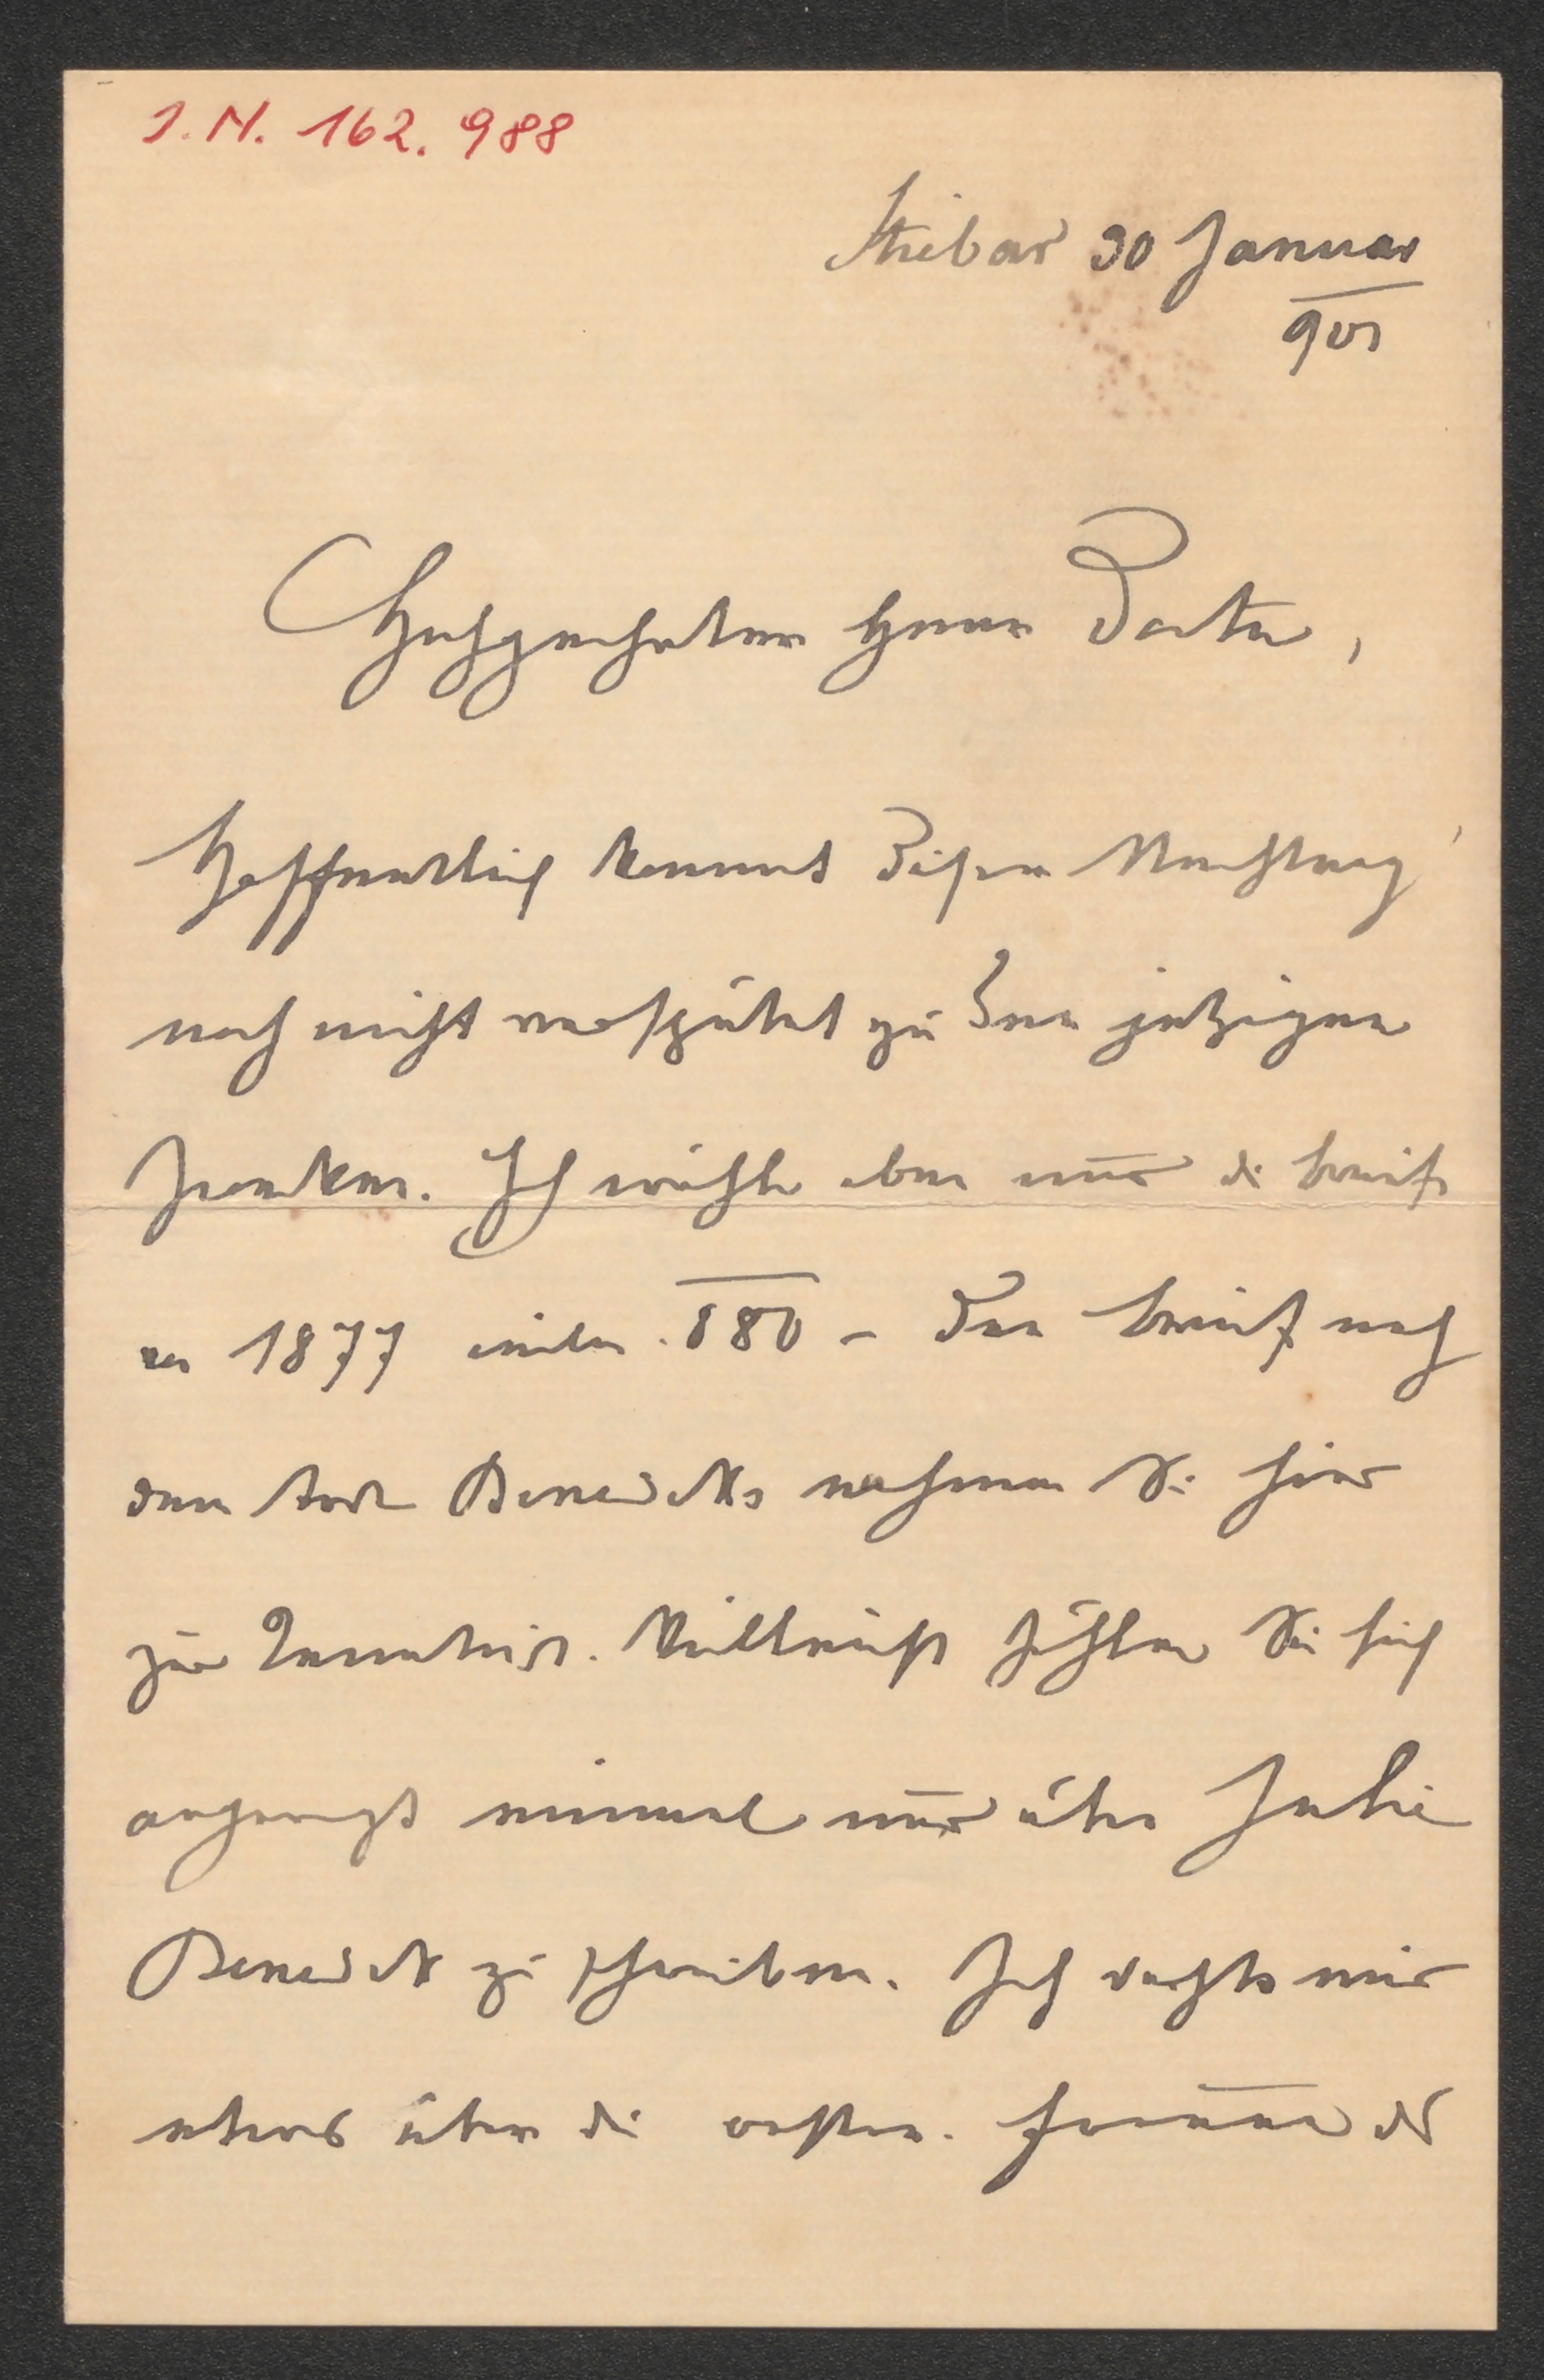 I.N. 162.988
Stiebar 30 Januar
901
Hochgeehrter Herr Doctor,
Hoffentlich kommt dieser Nachtrag
noch nicht verspätet zu den jetzigen
Zwecken. Ich wählte eben nur die Briefe
von 1877 und 880 – Den Brief nach
dem Tode Benedekts nehmen Sie hier
zur Kenntniss. Vielleicht fühlen Sie sich
angeregt einmal nur über Julie
Benedekt zu schreiben. Ich dachte mir
etwas über die österr. Frauen